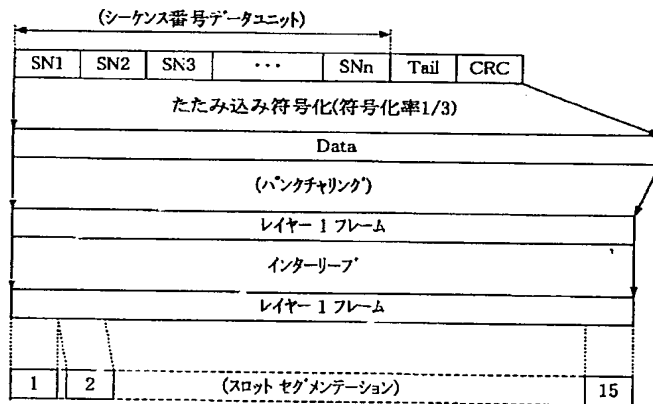 (シーケンス番号データユニット)
SN1 SN2 SN3 ... SNn Tail CRC
たたみ込み符号化(符号化率1/3)
Data
(パンクチャリング)
レイヤー 1 フレーム
インターリーブ
レイヤー 1 フレーム
1 2 (スロット セグメンテーション) 15